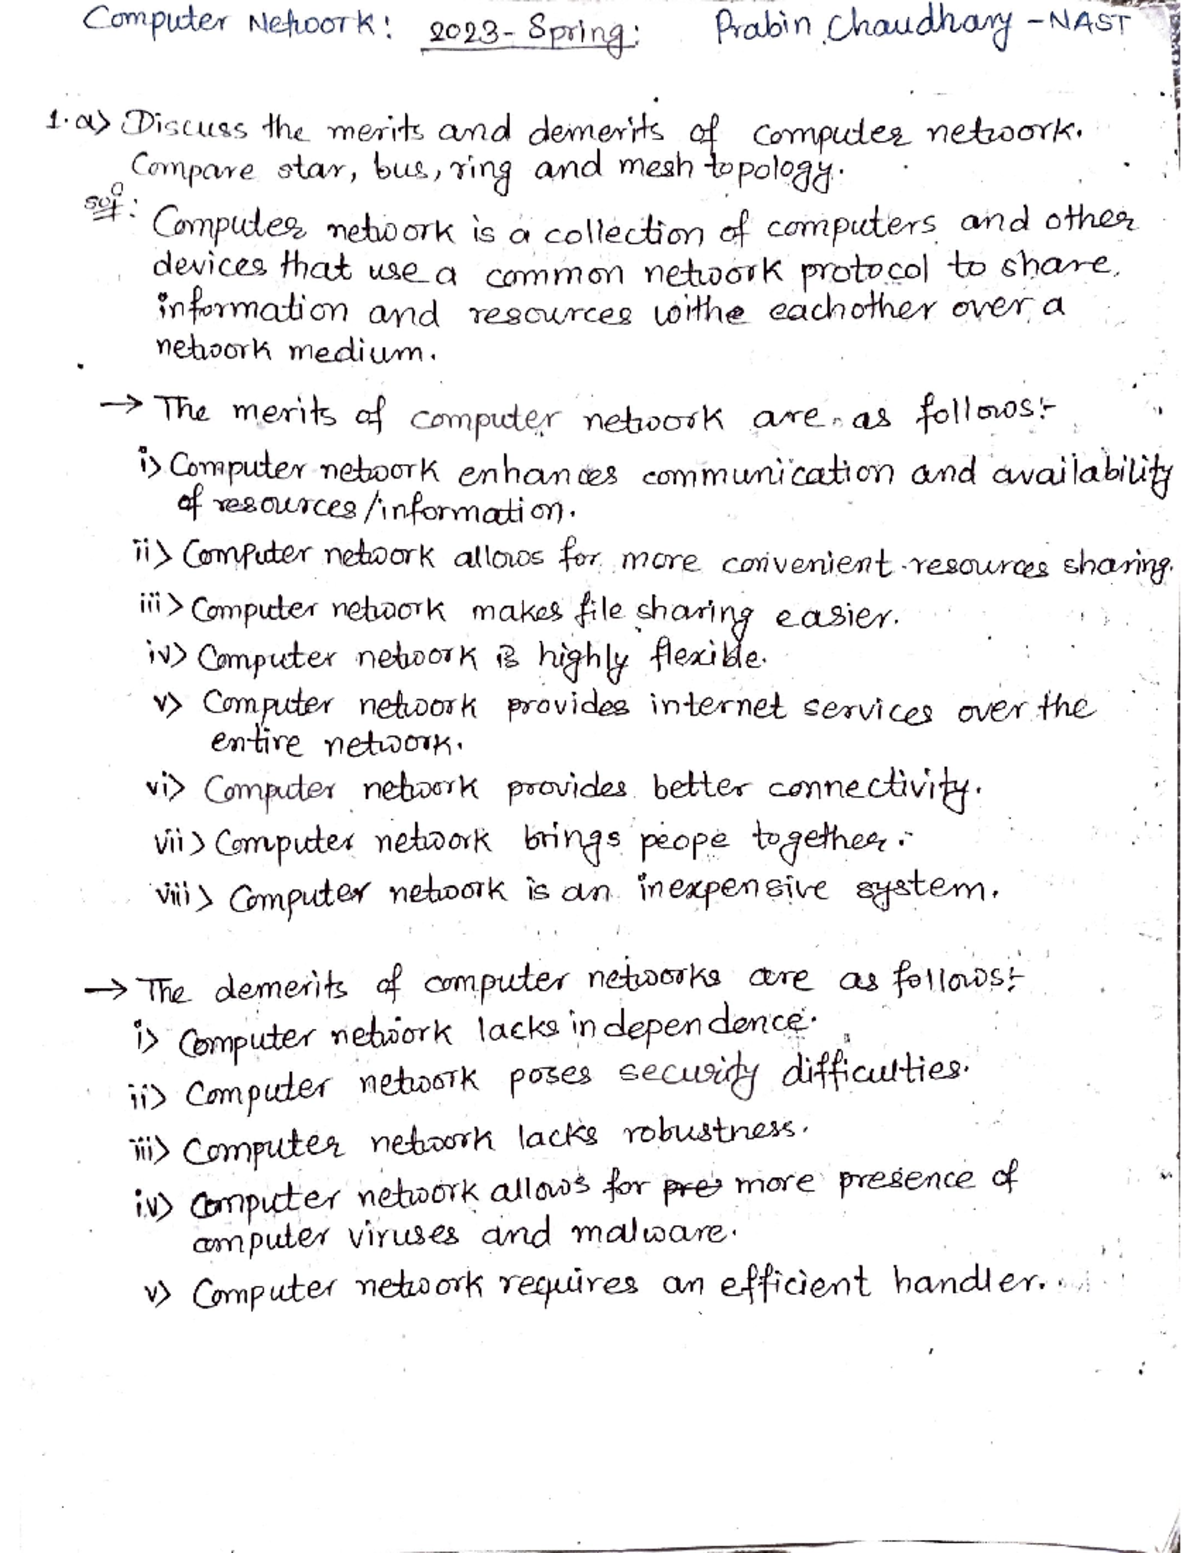 Computer Network: 2023-Spring: Prabin Chaudhary -NAST
1.a> Discuss the merits and demerits of computer network.
Compare star, bus, ring and mesh topology.
sol:
Computer network is a collection of computers and other
devices that use a common network protocol to share
information and resources withe eachother over a
network medium.
→ The merits of computer network are as follows:-
i> Computer network enhances communication and availability
of resources/information.
ii> Computer network allows for more convenient resources sharing.
iii> Computer network makes file sharing easier.
iv> Computer network is highly flexible.
v> Computer network provides internet services over the
entire network.
vi> Computer network provides better connectivity.
vii> Computer network brings peope together.
viii> Computer network is an inexpensive system.
→ The demerits of computer networks are as follows:-
i> Computer network lacks independence.
ii> Computer network poses security difficulties.
iii> Computer network lacks robustness.
iv> Computer network allows for pre more presence of
computer viruses and malware.
v> Computer network requires an efficient handler.